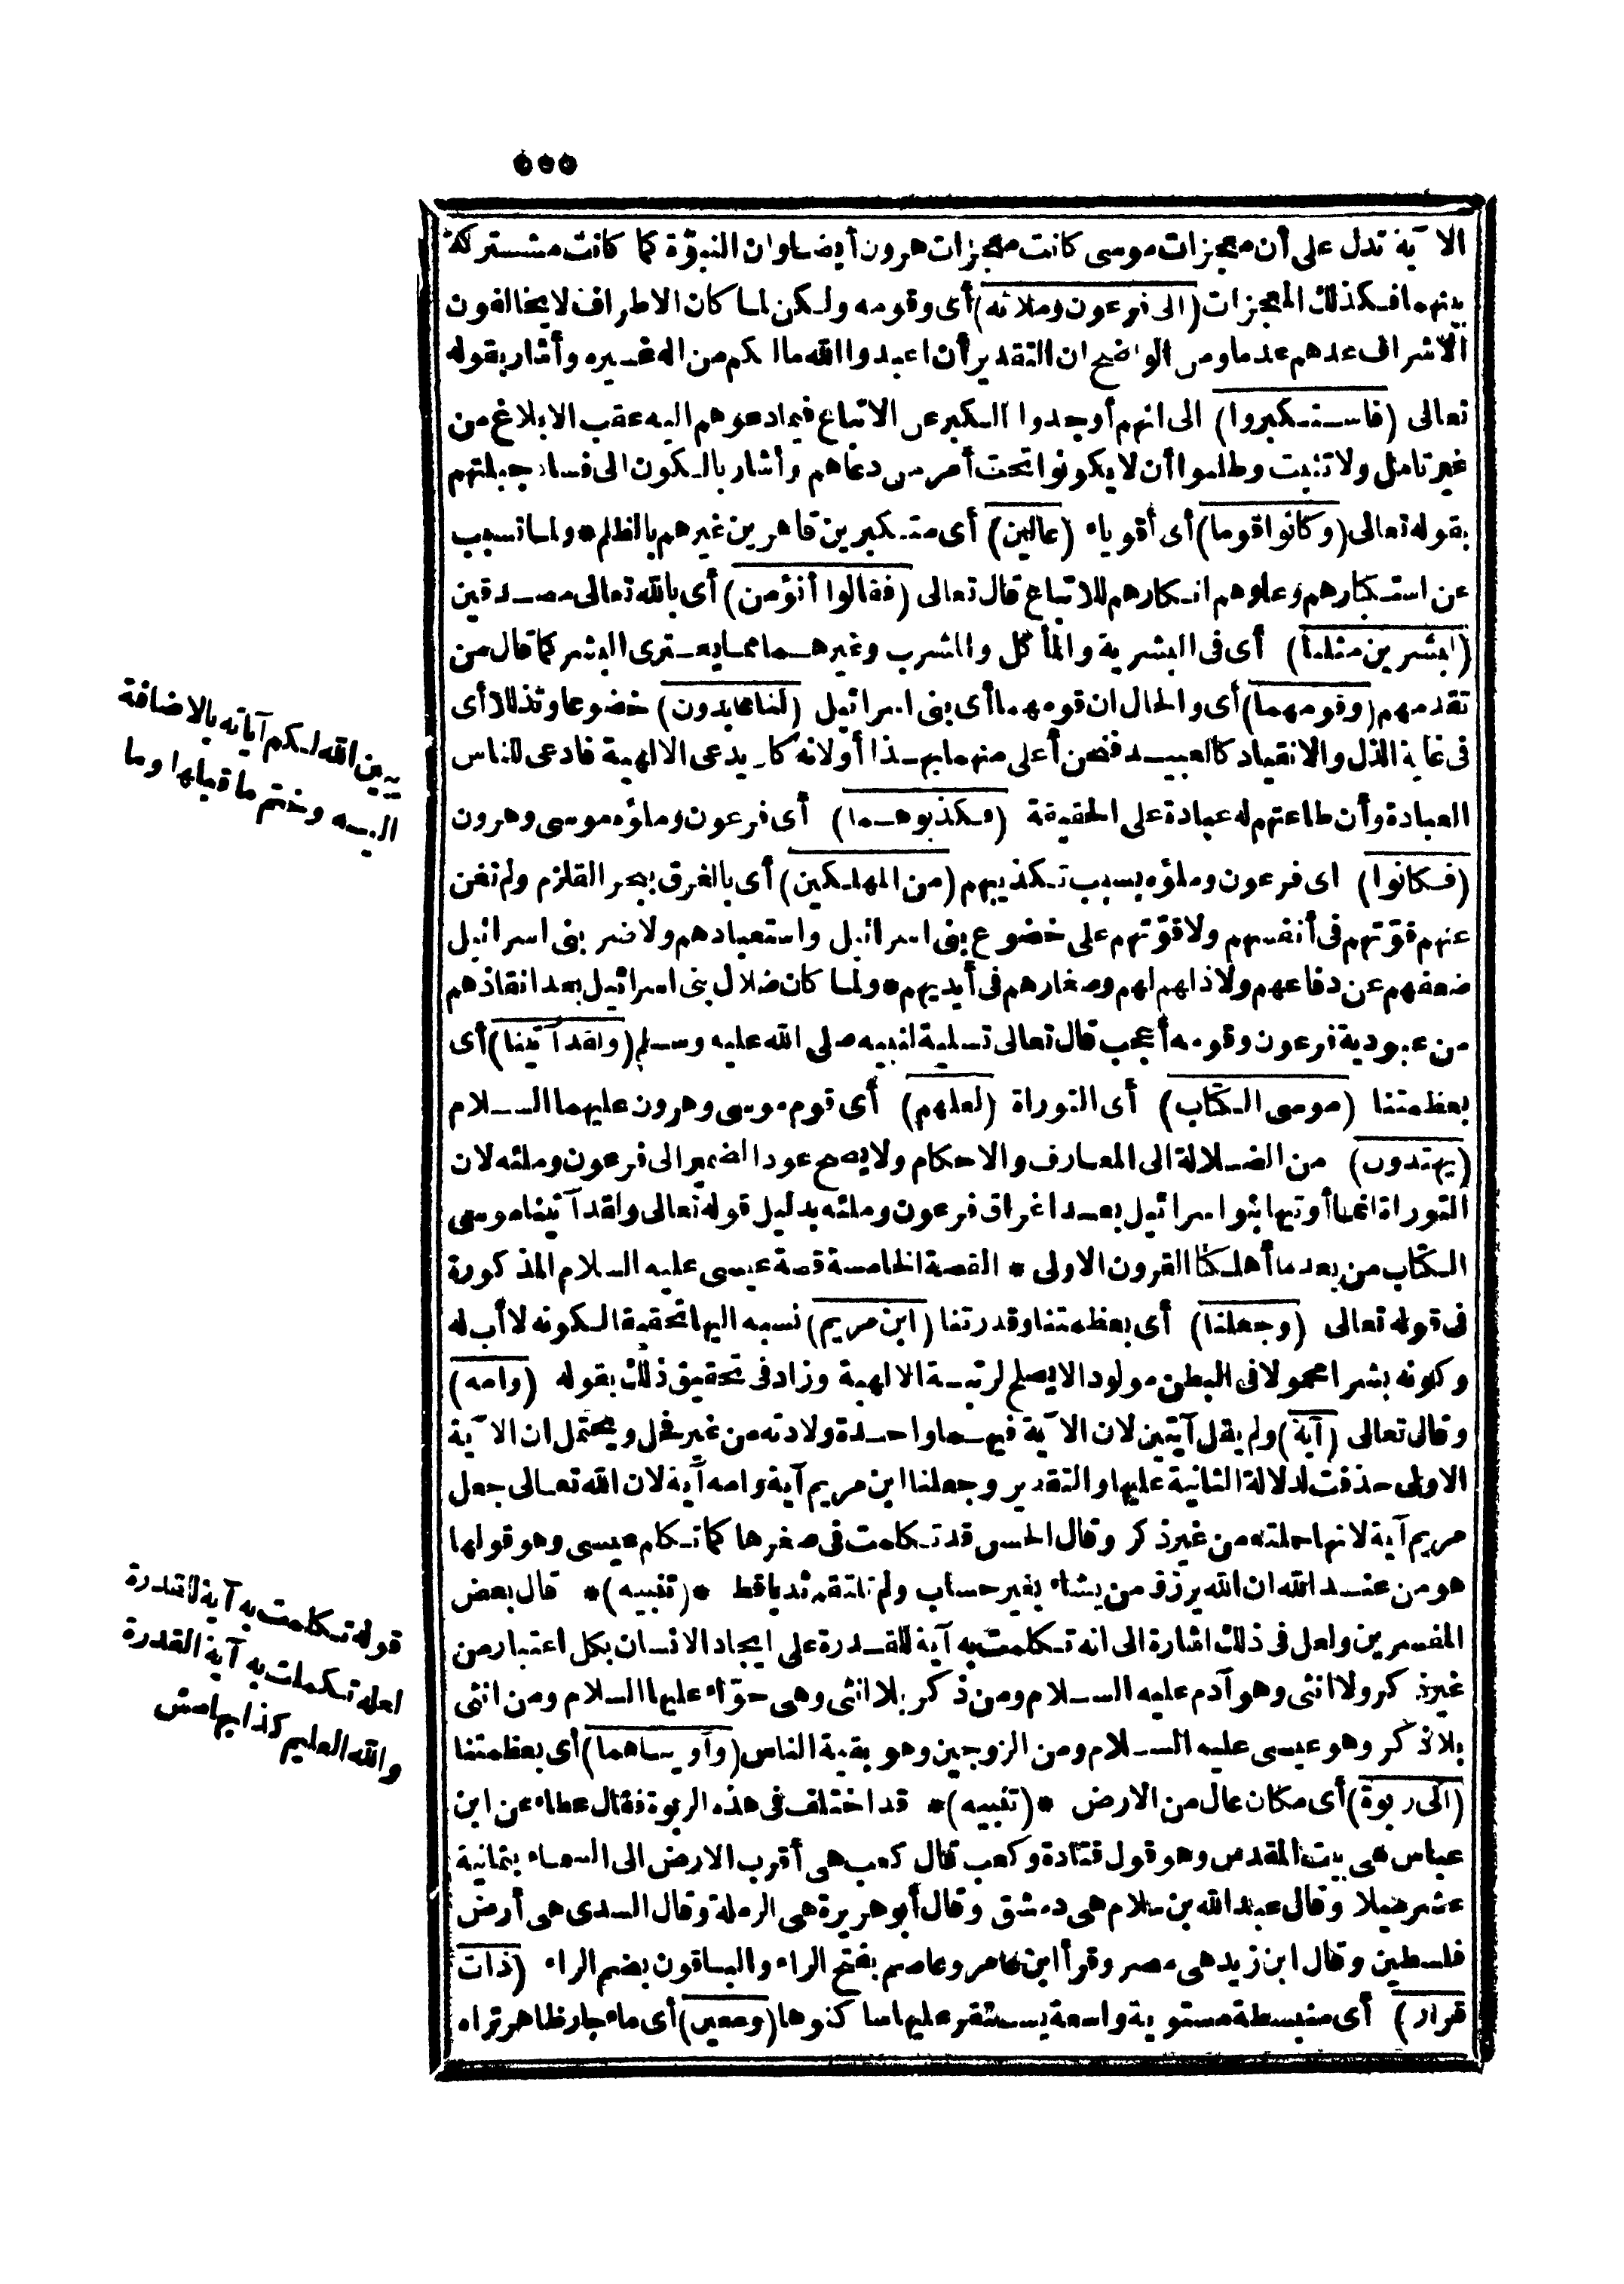 ٥٥٥
الآية تدل على أن معجزات موسى كانت معجزات هرون أيضا وان النبوّة كما كانت مشتركة
بينهما فكذلك المعجزات (الى فرعون وملائه) أى وقومه ولكن لما كان الاطراف لا يخالفون
الأشراف عدهم عدما ومن الواضح ان التقدير أن اعبدوا الله ما لكم من اله غيره وأشار بقوله
تعالى (فاستكبروا) الى انهم أوجدوا الكبر عن الاتباع فيما دعوهم اليه عقب الابلاغ من
غير تامل ولا تثبت وطلبوا أن لا يكونوا تحت أمر من دعاهم وأشار بالكون الى فساد جبلتهم
بقوله تعالى (وكانوا قوما) أى أقوياء (عالين) أى متكبرين قاهرين غيرهم بالظلم * ولما تسبب
عن استكبارهم وعلوهم انكارهم للاتباع قال تعالى (فقالوا أنؤمن) أى بالله تعالى مصدقين
(لبشرين مثلنا) أى فى البشرية والمأكل والمشرب وغيرهما مما يعترى البشر كما قال من
تقدمهم (وقومهما) أى والحال ان قومهما أى بنى اسرائيل (لنا عابدون) خضوعا وتذللا أى
فى غاية الذل والانقياد كالعبيد فنحن أعلى منهما بهذا أو لانه كان يدعى الالهية فادعى للناس
العبادة وأن طاعتهم له عبادة على الحقيقة (فكذبوهما) أى فرعون وملؤه موسى وهرون
(فكانوا) اى فرعون وملؤه بسبب تكذيبهم (من المهلكين) أى بالغرق ببحر القلزم ولم تغن
عنهم قوّتهم فى أنفسهم ولا قوّتهم على خضوع بنى اسرائيل واستعبادهم ولا ضر بنى اسرائيل
ضعفهم عن دفاعهم ولا ذلهم لهم وصغارهم فى أيديهم * ولما كان ضلال بنى اسرائيل بعد انقاذهم
من عبودية فرعون وقومه أعجب قال تعالى تسلية لنبيه صلى الله عليه وسلم (ولقد آتينا) أى
بعظمتنا (موسى الكتاب) أى التوراة (لعلهم) أى قوم موسى وهرون عليهما السلام
(يهتدون) من الضلالة الى المعارف والاحكام ولا يصح عود الضمير الى فرعون وملئه لان
التوراة انما أوتيها بنو اسرائيل بعد اغراق فرعون وملئه بدليل قوله تعالى ولقد آتينا موسى
الكتاب من بعد ما أهلكنا القرون الاولى * القصة الخامسة قصة عيسى عليه السلام المذكورة
فى قوله تعالى (وجعلنا) أى بعظمتنا وقدرتنا (ابن مريم) نسبه اليها تحقيقا لكونه لا أب له
وكونه بشرا محمولا فى البطن مولودا لا يصلح لرتبة الالهية وزاد فى تحقيق ذلك بقوله (وامه)
وقال تعالى (آية) ولم يقل آيتين لان الآية فيهما واحدة ولادته من غير فحل ويحتمل ان الآية
الاولى حذفت لدلالة الثانية عليها والتقدير وجعلنا ابن مريم آية وامه آية لان الله تعالى جعل
مريم آية لانها حملته من غير ذكر وقال الحسن قد تكلمت فى صغرها كما تكلم عيسى وهو قولها
هو من عند الله ان الله يرزق من يشاء بغير حساب ولم تلتقم ثديا قط * (تنبيه) * قال بعض
المفسرين ولعل فى ذلك اشارة الى انه تكلمت به آية للقدرة على ايجاد الانسان بكل اعتبار من
غير ذكر ولا انثى وهو آدم عليه السلام ومن ذكر بلا انثى وهى حوّاء عليها السلام ومن انثى
بلا ذكر وهو عيسى عليه السلام ومن الزوجين وهو بقية الناس (وآويناهما) أى بعظمتنا
(الى ربوة) أى مكان عال من الارض * (تنبيه) * قد اختلف فى هذه الربوة فقال عطاء عن ابن
عباس هى بيت المقدس وهو قول قتادة وكعب قال كعب هى أقرب الارض الى السماء بثمانية
عشر ميلا وقال عبد الله بن سلام هى دمشق وقال أبو هريرة هى الرملة وقال السدى هى أرض
فلسطين وقال ابن زيد هى مصر وقرأ ابن عامر وعاصم بفتح الراء والباقون بضم الراء (ذات
قرار) أى منبسطة مستوية واسعة يستقر عليها ساكنوها (ومعين) أى ماء جار ظاهر تراه
يبين الله لكم آياته بالاضافة
اليه وختم ما قبلها وما
قوله تكلمت به آية للقدرة
لعله تكملت به آية القدرة
والله العليم كذا بهامش